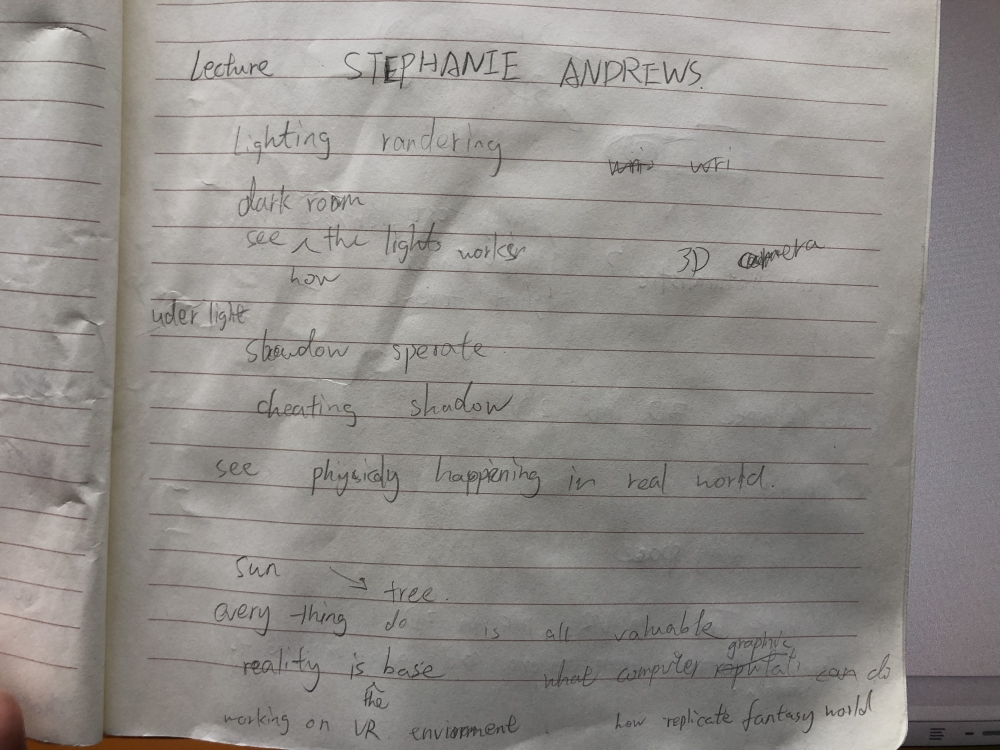 Lecture STEPHANIE ANDREWS.
lighting randering
wri
dark room
see how the lights works
3D camera
uder light
shawdow sperate
cheating shadow
see physicaly happening in real world.
sun → tree.
every thing do is all valuable
reality is the base what computer graphic can do
working on VR envionment how replicate fantasy world